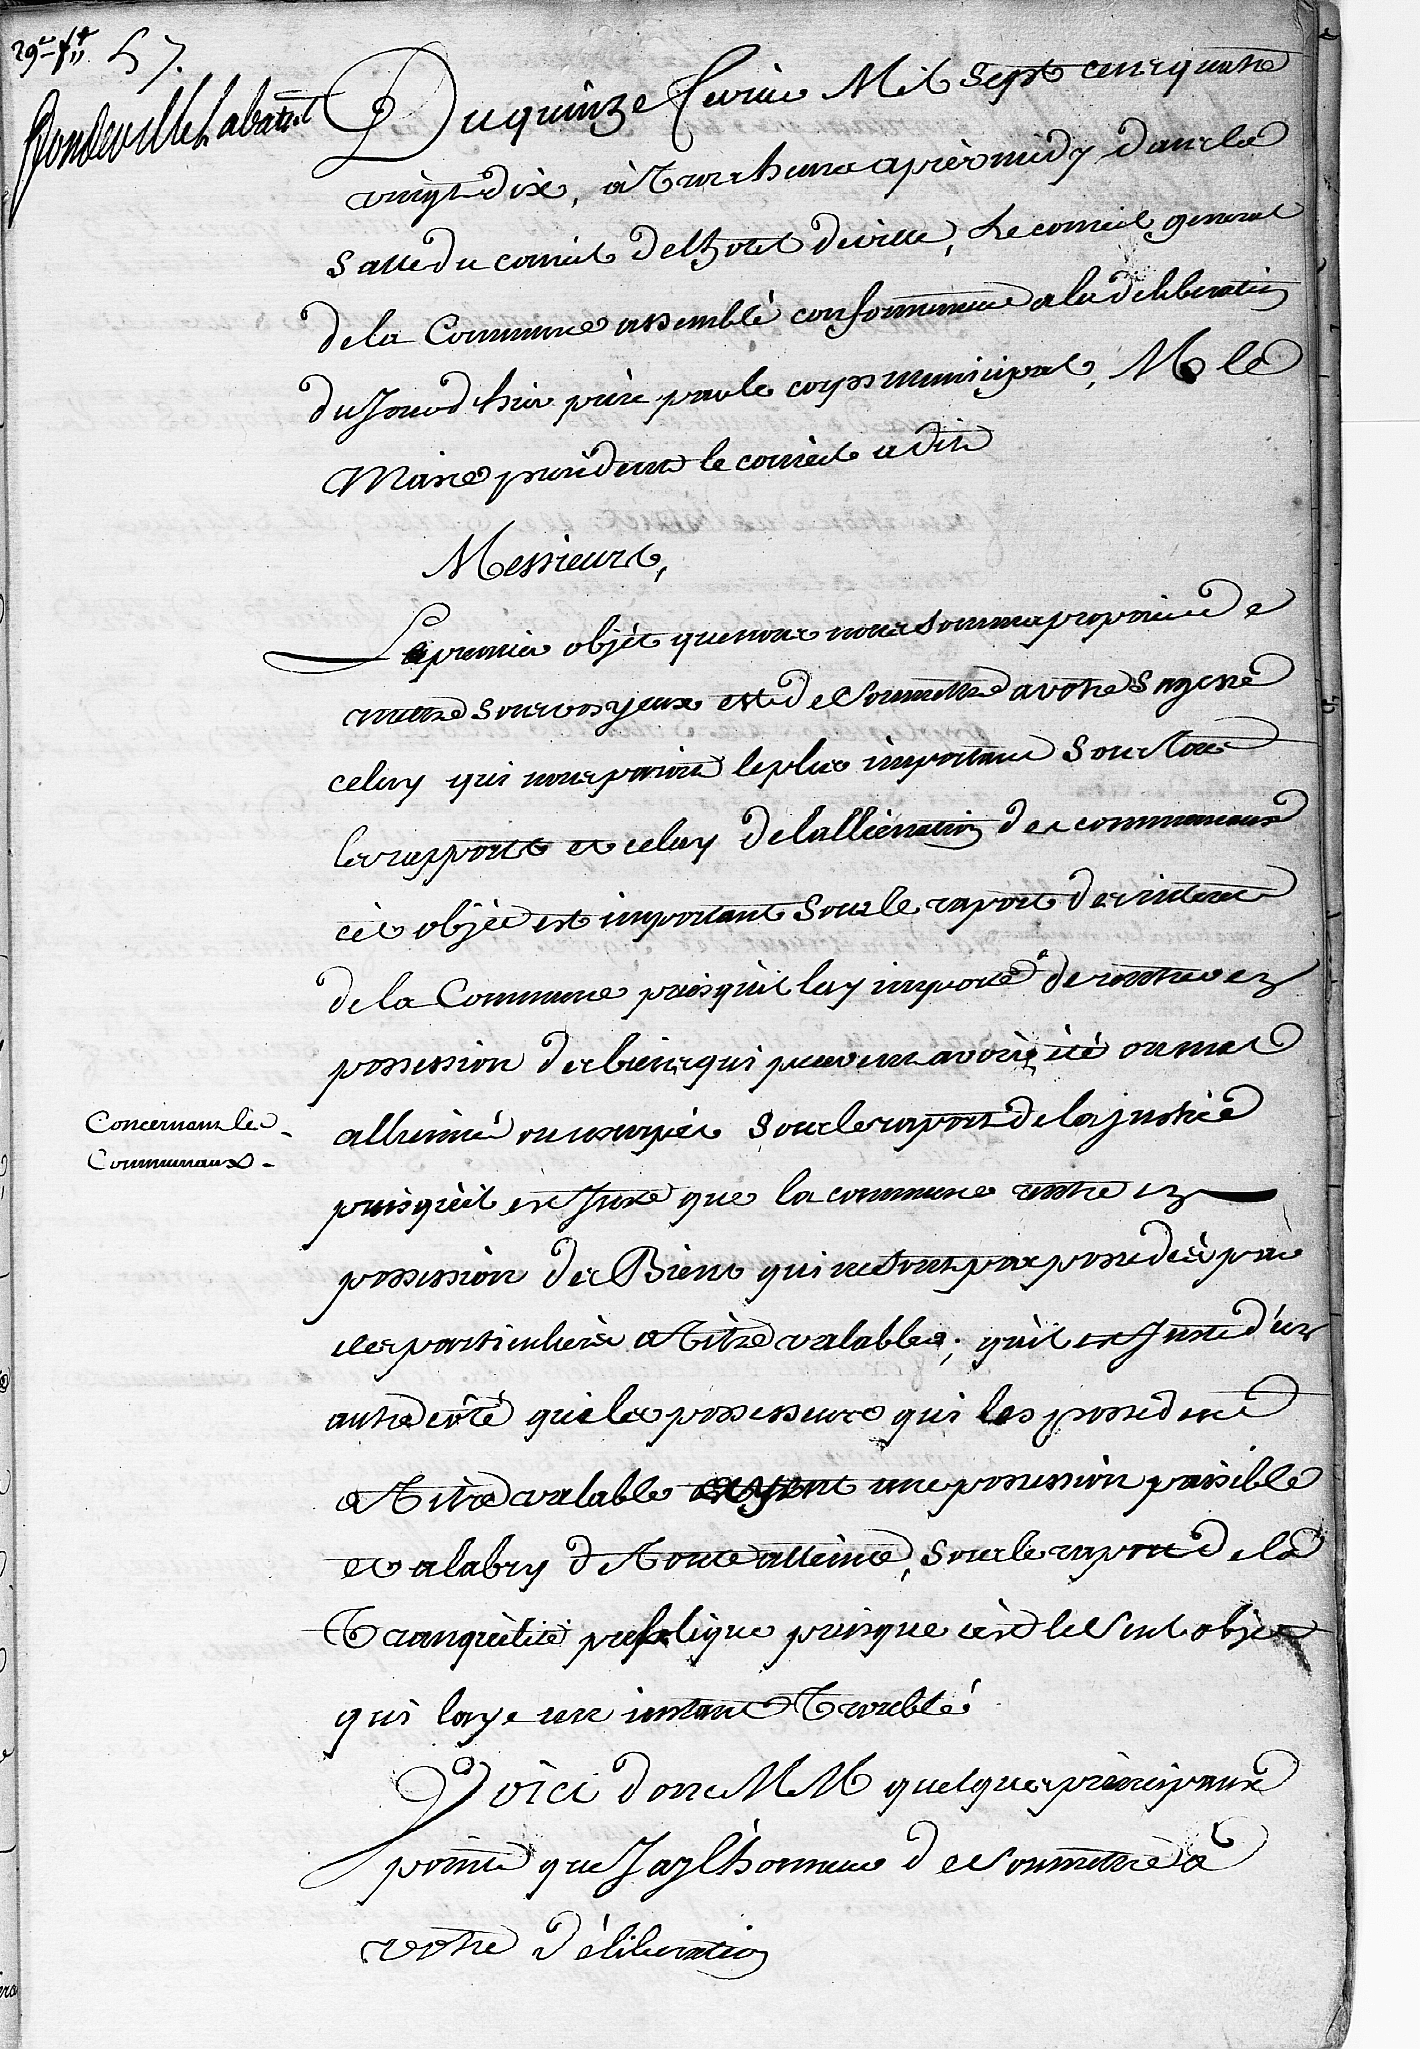 29e f.t 57.
Du quinze fevrier Mil Sept cent quatre
vingt dix, à Trois heures après midy dans la
Salle du conseil de lhotel de ville, Le conseil general
de la Commune assemblé conformement a la deliberation
du Jour d'hier prise par le corps municipal, M. le
Maire presidant le conseil a dit
Messieurs,
Le premier objèt que nous nous sommes proposés de
mettre Sous vos yeux et de Soumettre a votre Sagesse
celuy qui nous paroit le plus important Sous Tous
les rapports est celuy de lallienation des communaux
cèt objèt est important Sous le raport des interets
de la Commune puisquil luy importe de rentrer en
possession des biens qui peuvent avoir été ou mal
alliennés ou usurpés Sous le raport de la justice
Concernant les
Communaux.
puisquil est Juste que la commune rentre en
possession des Biens qui ne sont pas possedés par
des particuliers a Titre valables; quil est Juste d'un
autre côté que les possesseurs qui les possedent
a Titre valable ayent une possession paisible
et a labry de Toute atteinte, Sous le raport de la
Tranquilité publique puisque cést le Seul objet
qui laye un instant Troublé.
Voici donc MM quelques principaux
points que Jay lhonneur de Soumettre à
votre déliberation